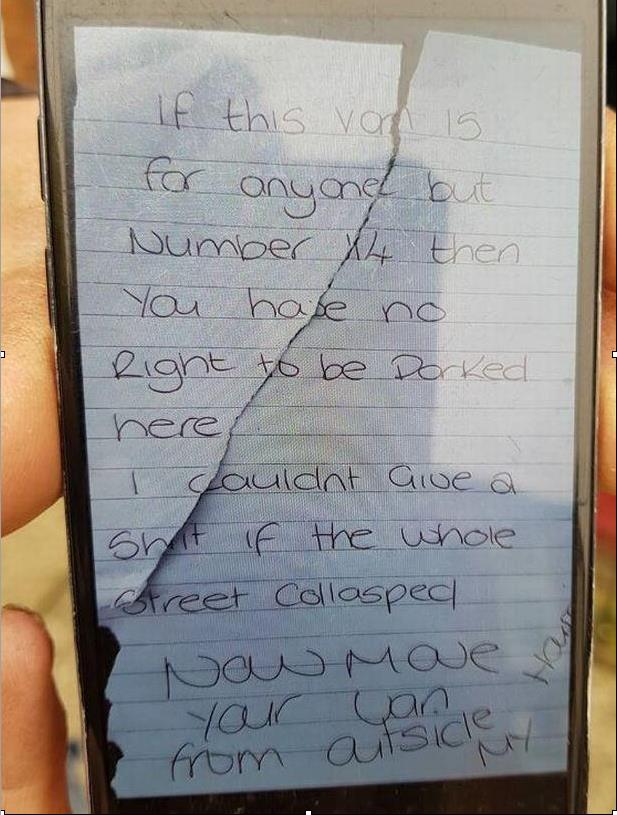 If this van is
for anyone but
Number 14 then
You have no
Right to be Parked
here
I couldnt Give a
Shit if the whole
Street Collasped
Now Move
Your Van
from outside
MY